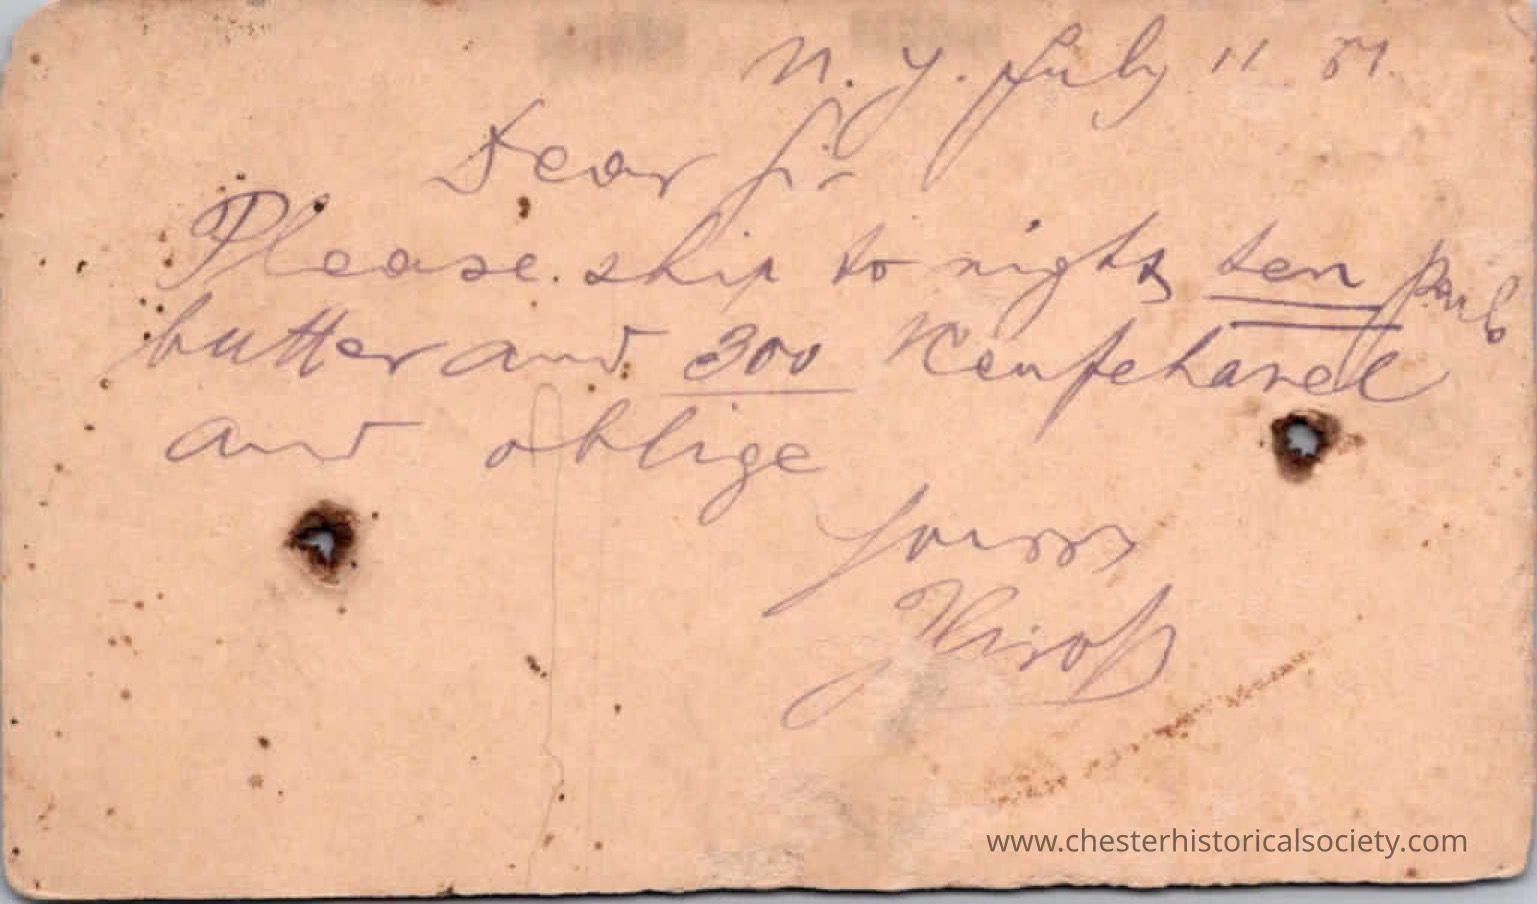 N. Y. July 11
Dear Sir
Please ship to night ten
butter and 300
and oblige
Yours
www.chesterhistoricalsociety.com